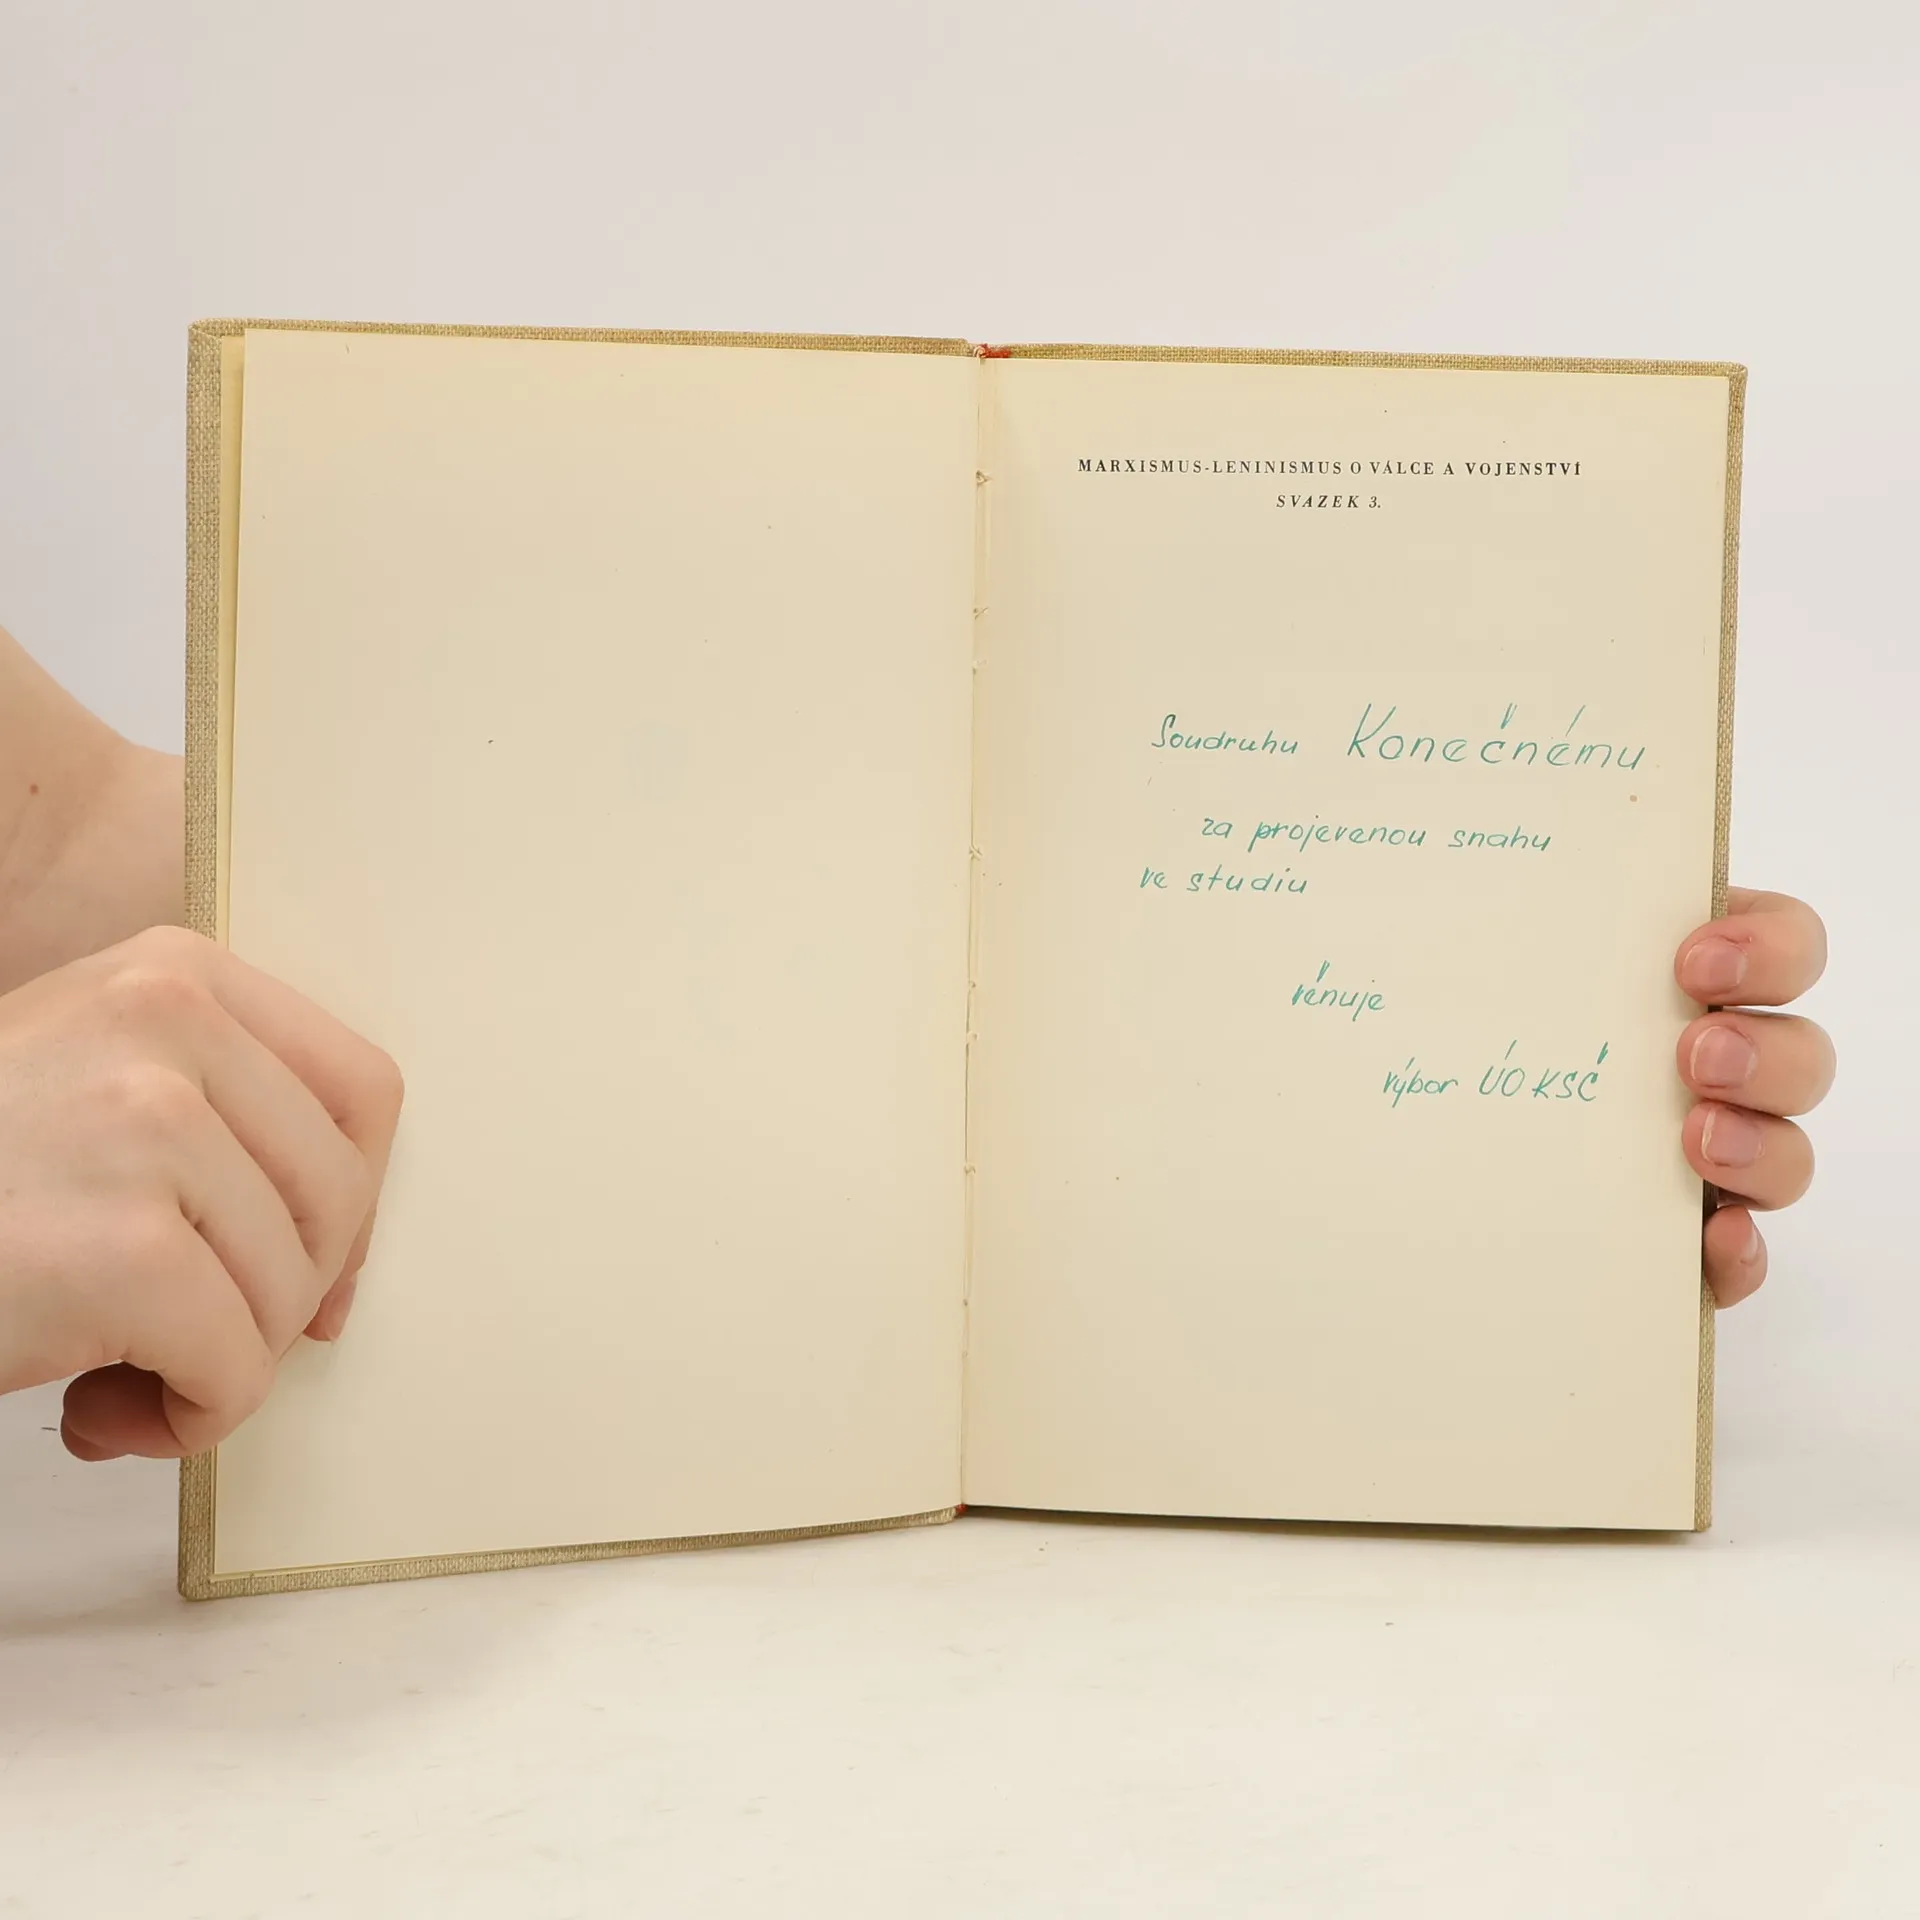 MARXISMUS-LENINISMUS O VÁLCE A VOJENSTVÍ
SVAZEK 3.
Soudruhu Konečnému
za projevenou snahu
ve studiu
věnuje
výbor ÚO KSČ